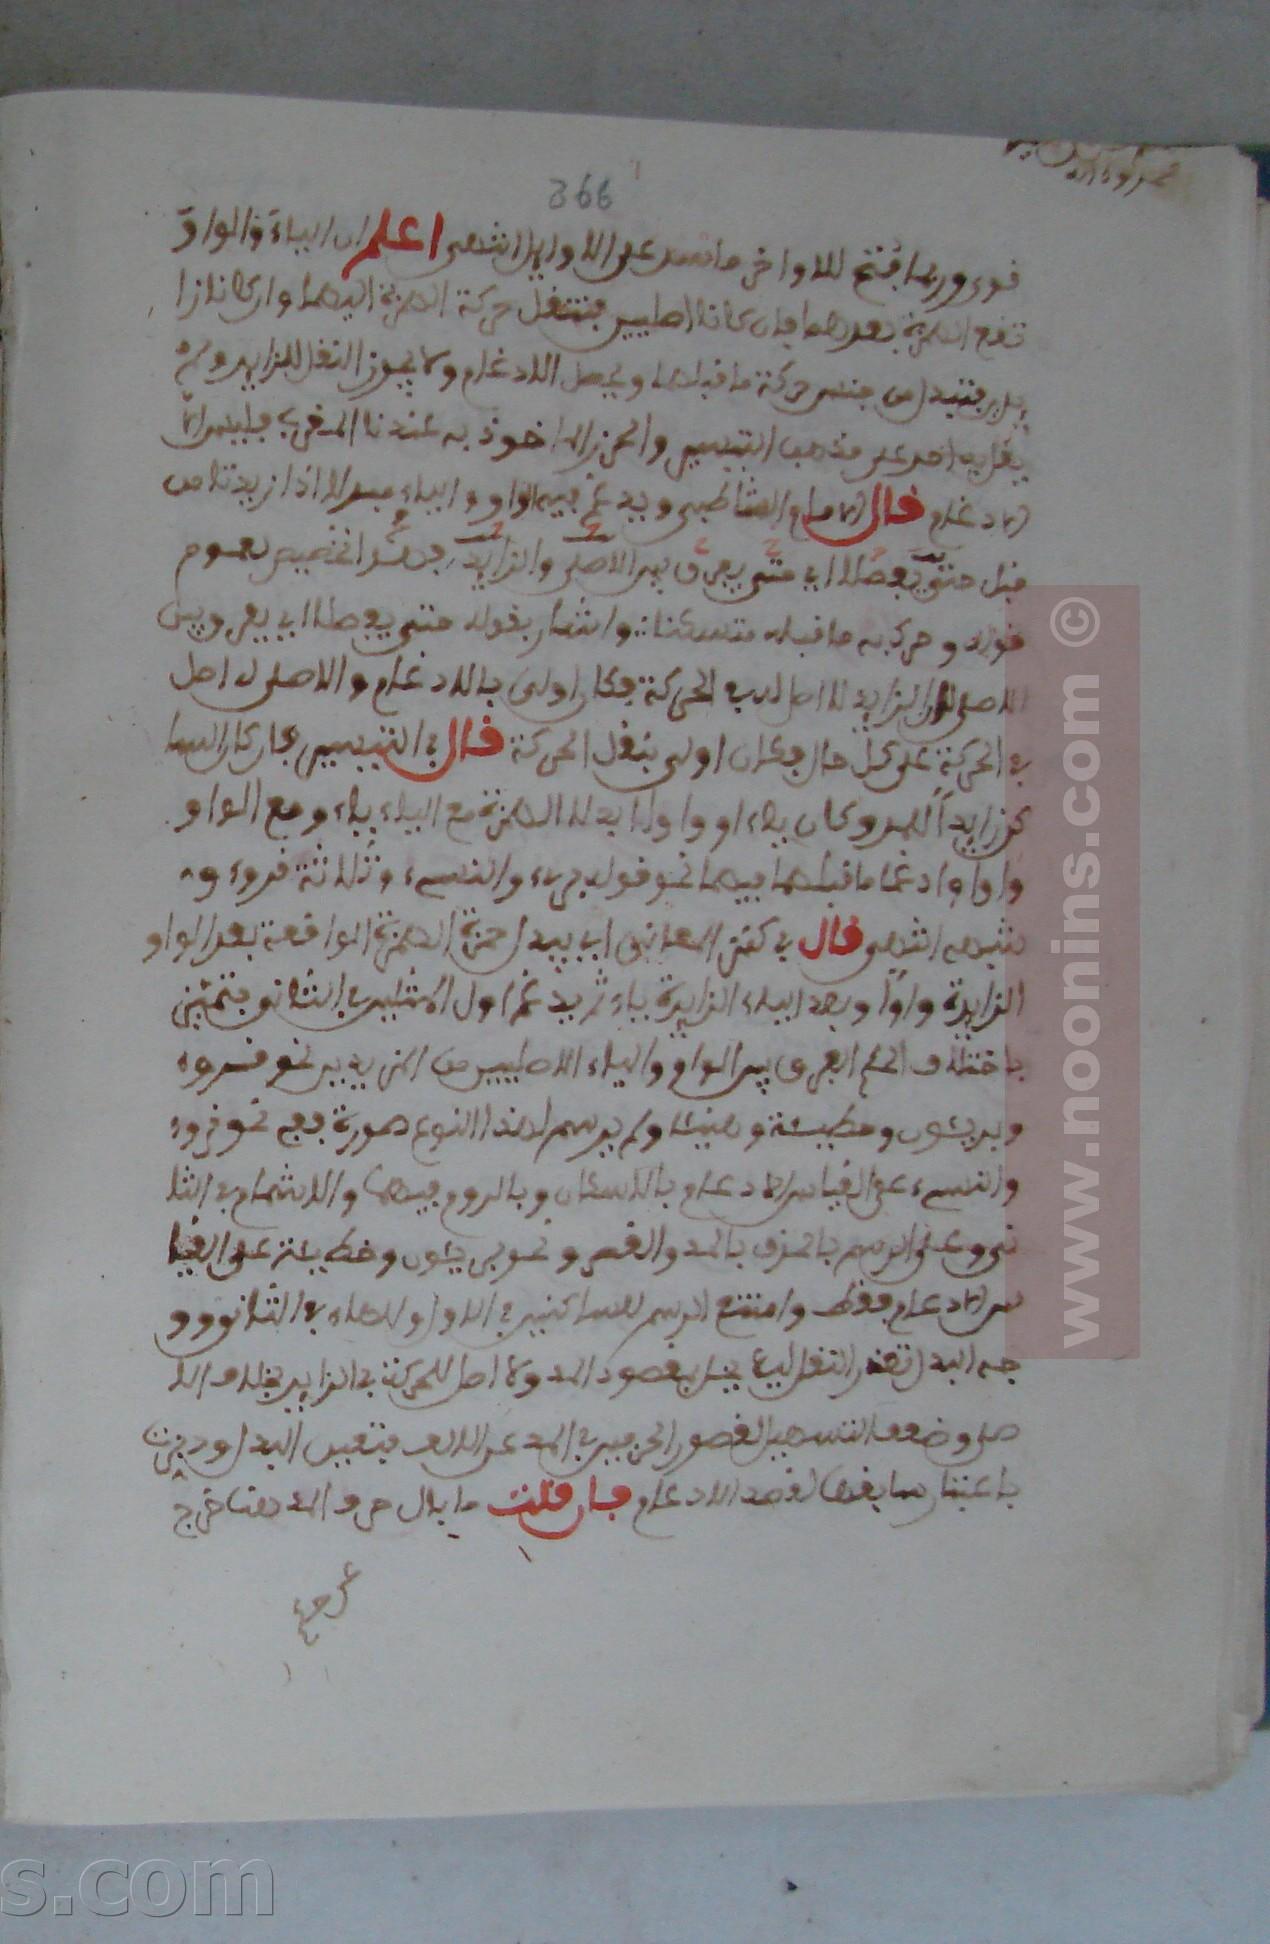 366
قوي وربما افتتح للاواخر ما تسد على الاوايل انتهى اعلم ان الياء والواو
تقع الهمزة بعدهما فان كانا اصليين فتنقل حركة الهمزة اليهما وان كانا زا
يدين فتبدل من جنس حركة ما قبلها ويحصل الادغام ولا يجوز النقل للزايد ولم
يقل به احد على مذهب التيسير والحرز الماخوذ به عندنا المغرب فليس الا
الادغام قال الامام الشاطبي ويدغم فيه الواو والياء مبدلا اذا زيدتا من
قبل حتى يفصلا اي حتى يفرق بين الاصلي والزايد
قوله وحرك به ما قبله متسكنا واشار بقوله حتى يفصلا اي يفرق بين
الاصلي الزايد لا اصل له في الحركة فكان اولى بالادغام والاصلي له اصل
في الحركة على كل حال فكان اولى بنقل الحركة قال في التيسير فان كان السا
كن زايدا للمد وكان ياء او واوا ابدلا الهمزة مع الياء ياء ومع الواو
واوا وادغما ما قبلهما فيهما نحو قوله بريء والنسيء وثلاثة قروء و
شبهه انتهى قال في كنز المعاني اي يبدل حمزة الهمزة الواقعة بعد الواو
الزايدة واوا وبعد الياء الزايدة ياء ثم يدغم اول المثلين في الثاني فتميز
باختلاف الحكم الفرق بين الواو والياء الاصليين من المزيدين نحو قروء
وبريئون وخطيئة وهنيئا ولم يرسم لهذا النوع صورة فنحو قروء
والنسيء على القياس الادغام بالاسكان وبالروم فيهما والاشمام في الثا
ني وعلى الرسم بالحذف بالمد والقصر ونحو بريئون وخطيئة على القيا
س الادغام فقط وامتنع الرسم للساكنين في الاول وللهاء في الثاني وو
جه البدل تعذر النقل ليلا يخل بمقصود المد ولا اصل للحركة في الزايد بخلاف الا
صلي وضعف التسهيل لقصور الحرفين في المد عن الالف فتعين البدل
باعتبار سابقها لقصد الادغام فان قلت ما بال حرف المد هنا خرج
www.noonins.com ©
s.com